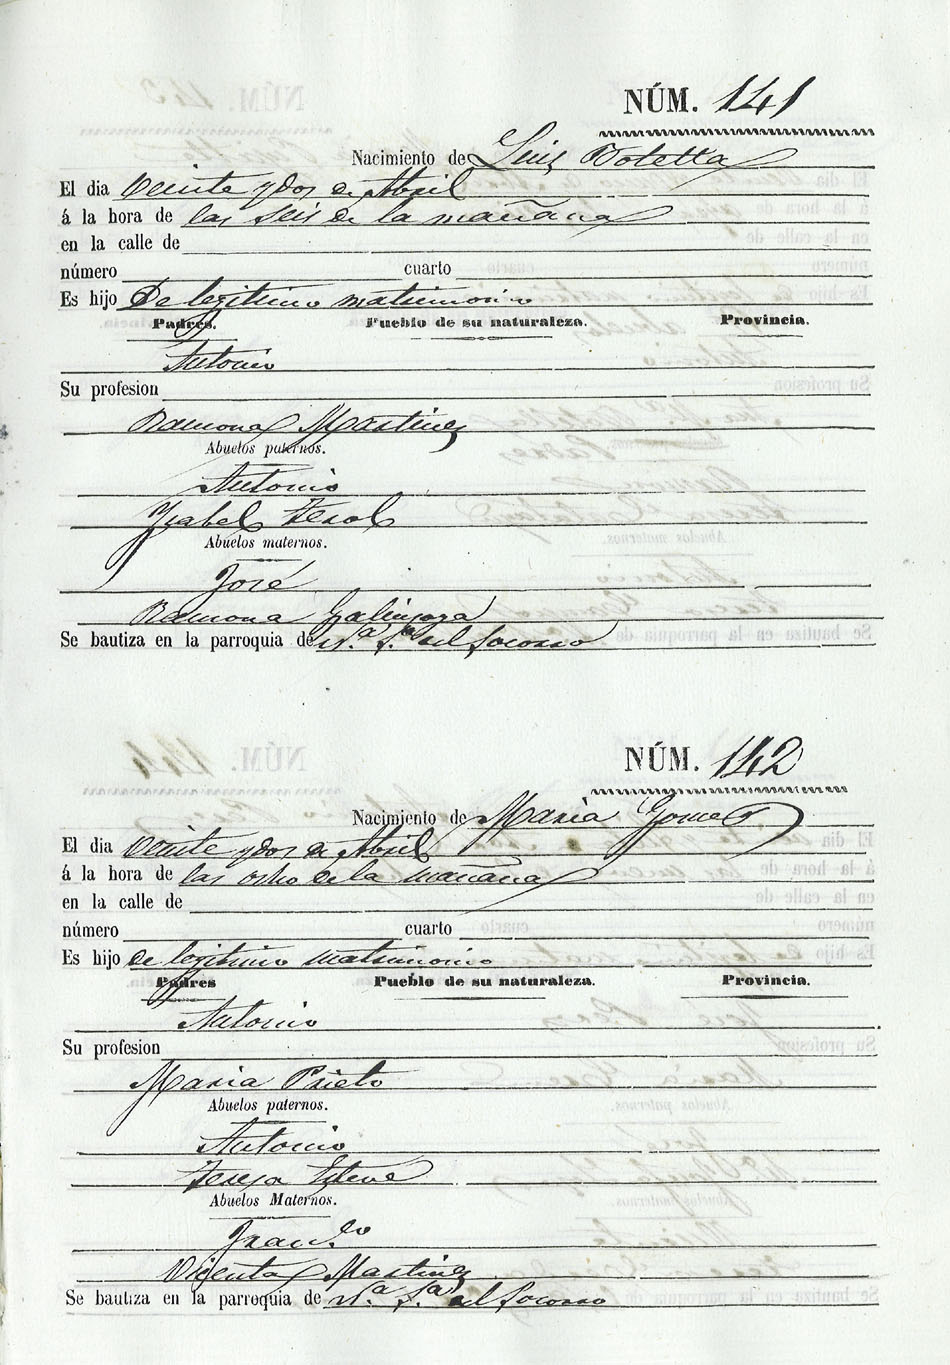 NÚM. 141
Nacimiento de Luis Botella
El dia Veinte y dos de Abril
á la hora de las seis de la mañana
en la calle de
número cuarto
Es hijo De legitimo matrimonio
Padres. Pueblo de su naturaleza. Provincia.
Antonio
Su profesion
Ramona Martinez
Abuelos paternos.
Antonio
Ysabel
Abuelos maternos.
José
Ramona
Se bautiza en la parroquia de N.ª S.ª del Socorro
NÚM. 142
Nacimiento de Maria Gomez
El dia Veinte y dos de Abril
á la hora de las ocho de la mañana
en la calle de
número cuarto
Es hijo de legitimo matrimonio
Padres Pueblo de su naturaleza. Provincia.
Antonio
Su profesion
Maria Prieto
Abuelos paternos.
Antonio
Teresa Esteve
Abuelos Maternos.
Fran.co
Vicenta Martinez
Se bautiza en la parroquia de N.ª S.ª del Socorro